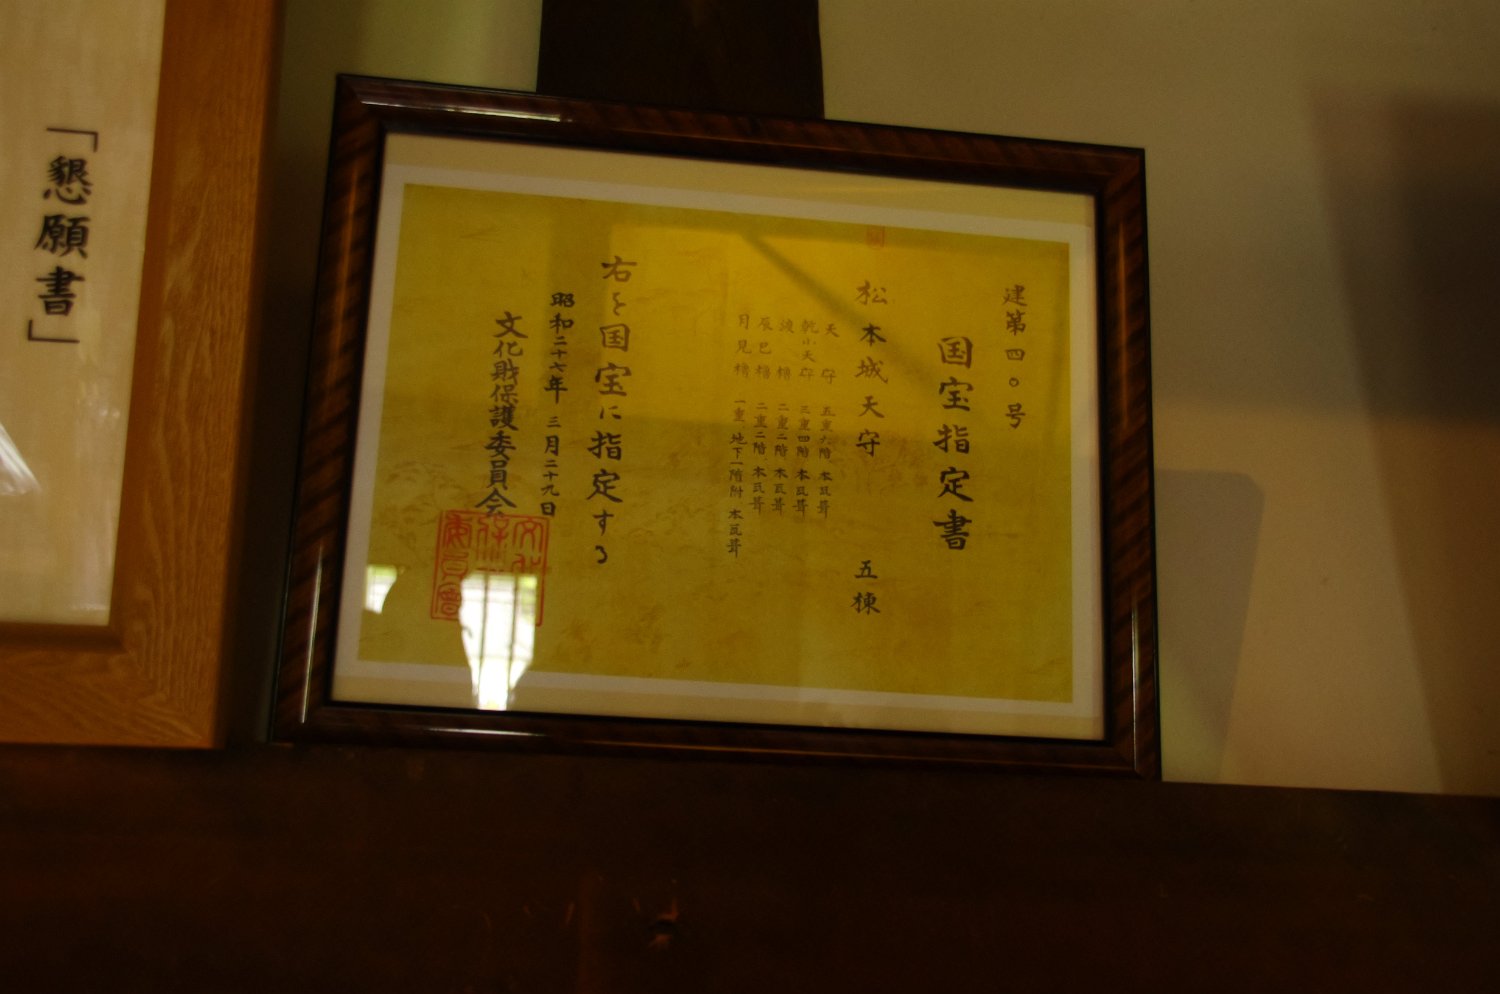 建第四〇号
国宝指定書
松本城天守 五棟
天守 五重六階 本瓦葺
乾小天守 三重四階 本瓦葺
渡櫓 二重二階 本瓦葺
辰巳櫓 二重二階 本瓦葺
月見櫓 一重 地下一階附 本瓦葺
右を国宝に指定する
昭和二十七年三月二十九日
文化財保護委員会
「懇願書」